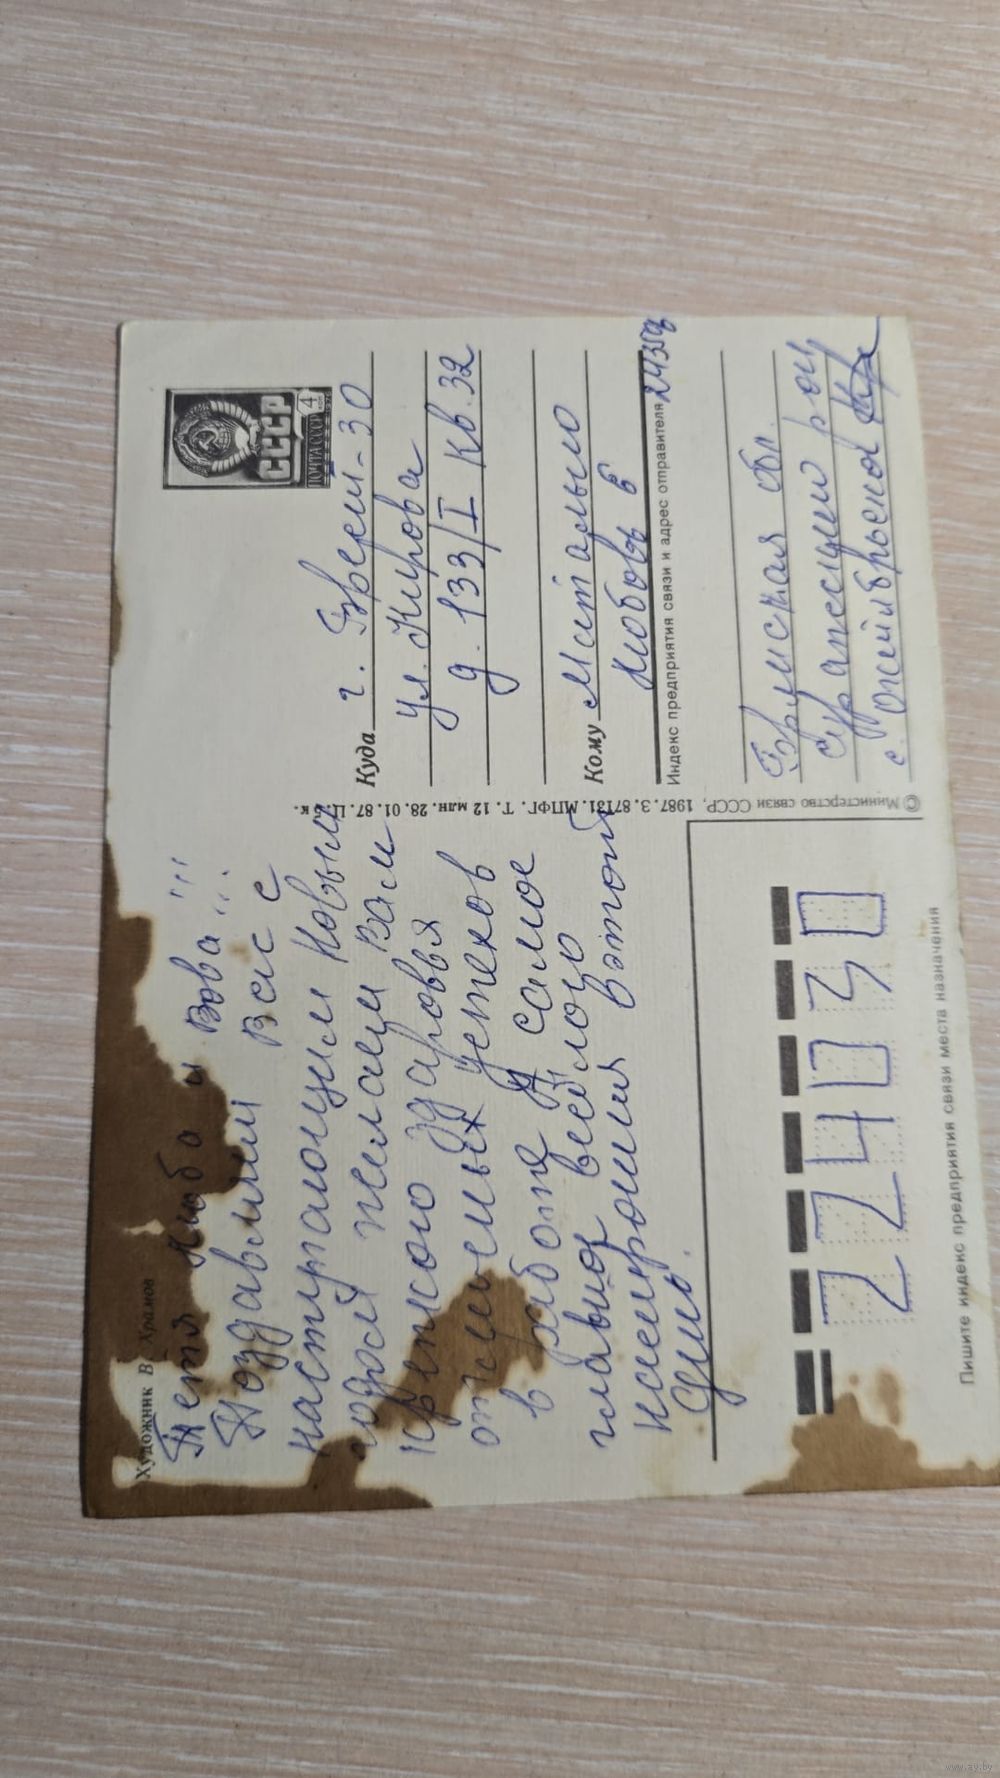 Художник В. Храмов
Тетя Люба и Вова!!!
Поздравляем Вас с
наступающим Новым
годом желаем Вам
крепкого здоровья
отличных успехов
в работе и самое
главное веселого
настроения в этой
ПОЧТА СССР
4
КОП
1976
СССР
Куда г. Брест-30
ул. Кирова
д. 133/I кв. 32
Кому
Любовь В
Индекс предприятия связи и адрес отправителя
Брянская обл.
Суражский рон
с. Октябрьское
© Министерство связи СССР, 1987. З. 87131. МПФГ. Т. 12 млн. 28. 01. 87. Ц. 5 к.
224030
Пишите индекс предприятия связи места назначения
www.ay.by